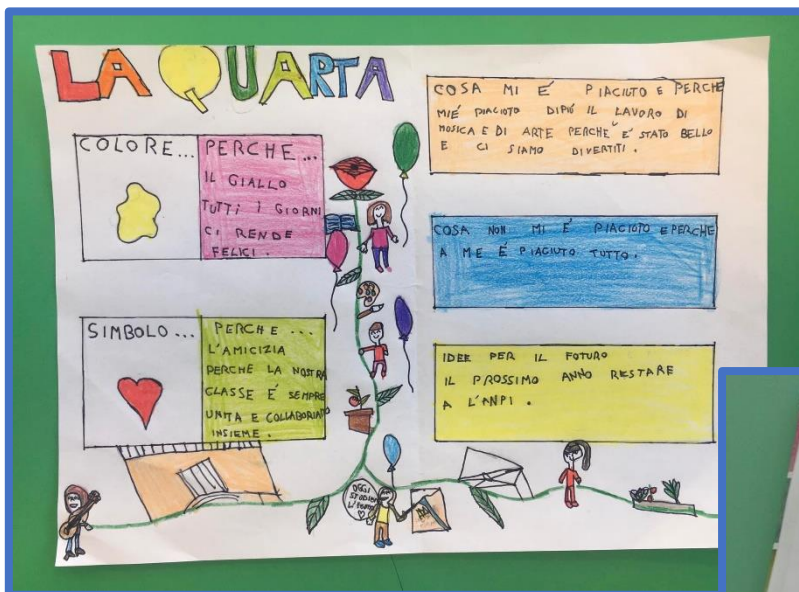 LA QUARTA
COLORE...
PERCHE...
IL GIALLO
TUTTI I GIORNI
CI RENDE
FELICI.
SIMBOLO...
PERCHE...
L'AMICIZIA
PERCHE LA NOSTRA
CLASSE É SEMPRE
UNITA E COLLABORIAMO
INSIEME.
COSA MI É PIACIUTO E PERCHE
MIÉ PIACIUTO DIPIÚ IL LAVORO DI
MUSICA E DI ARTE PERCHE É STATO BELLO
E CI SIAMO DIVERTITI.
COSA NON MI É PIACIUTO E PERCHE
A ME É PIACIUTO TUTTO.
IDEE PER IL FUTURO
IL PROSSIMO ANNO RESTARE
A L'ANPI.
OGGI